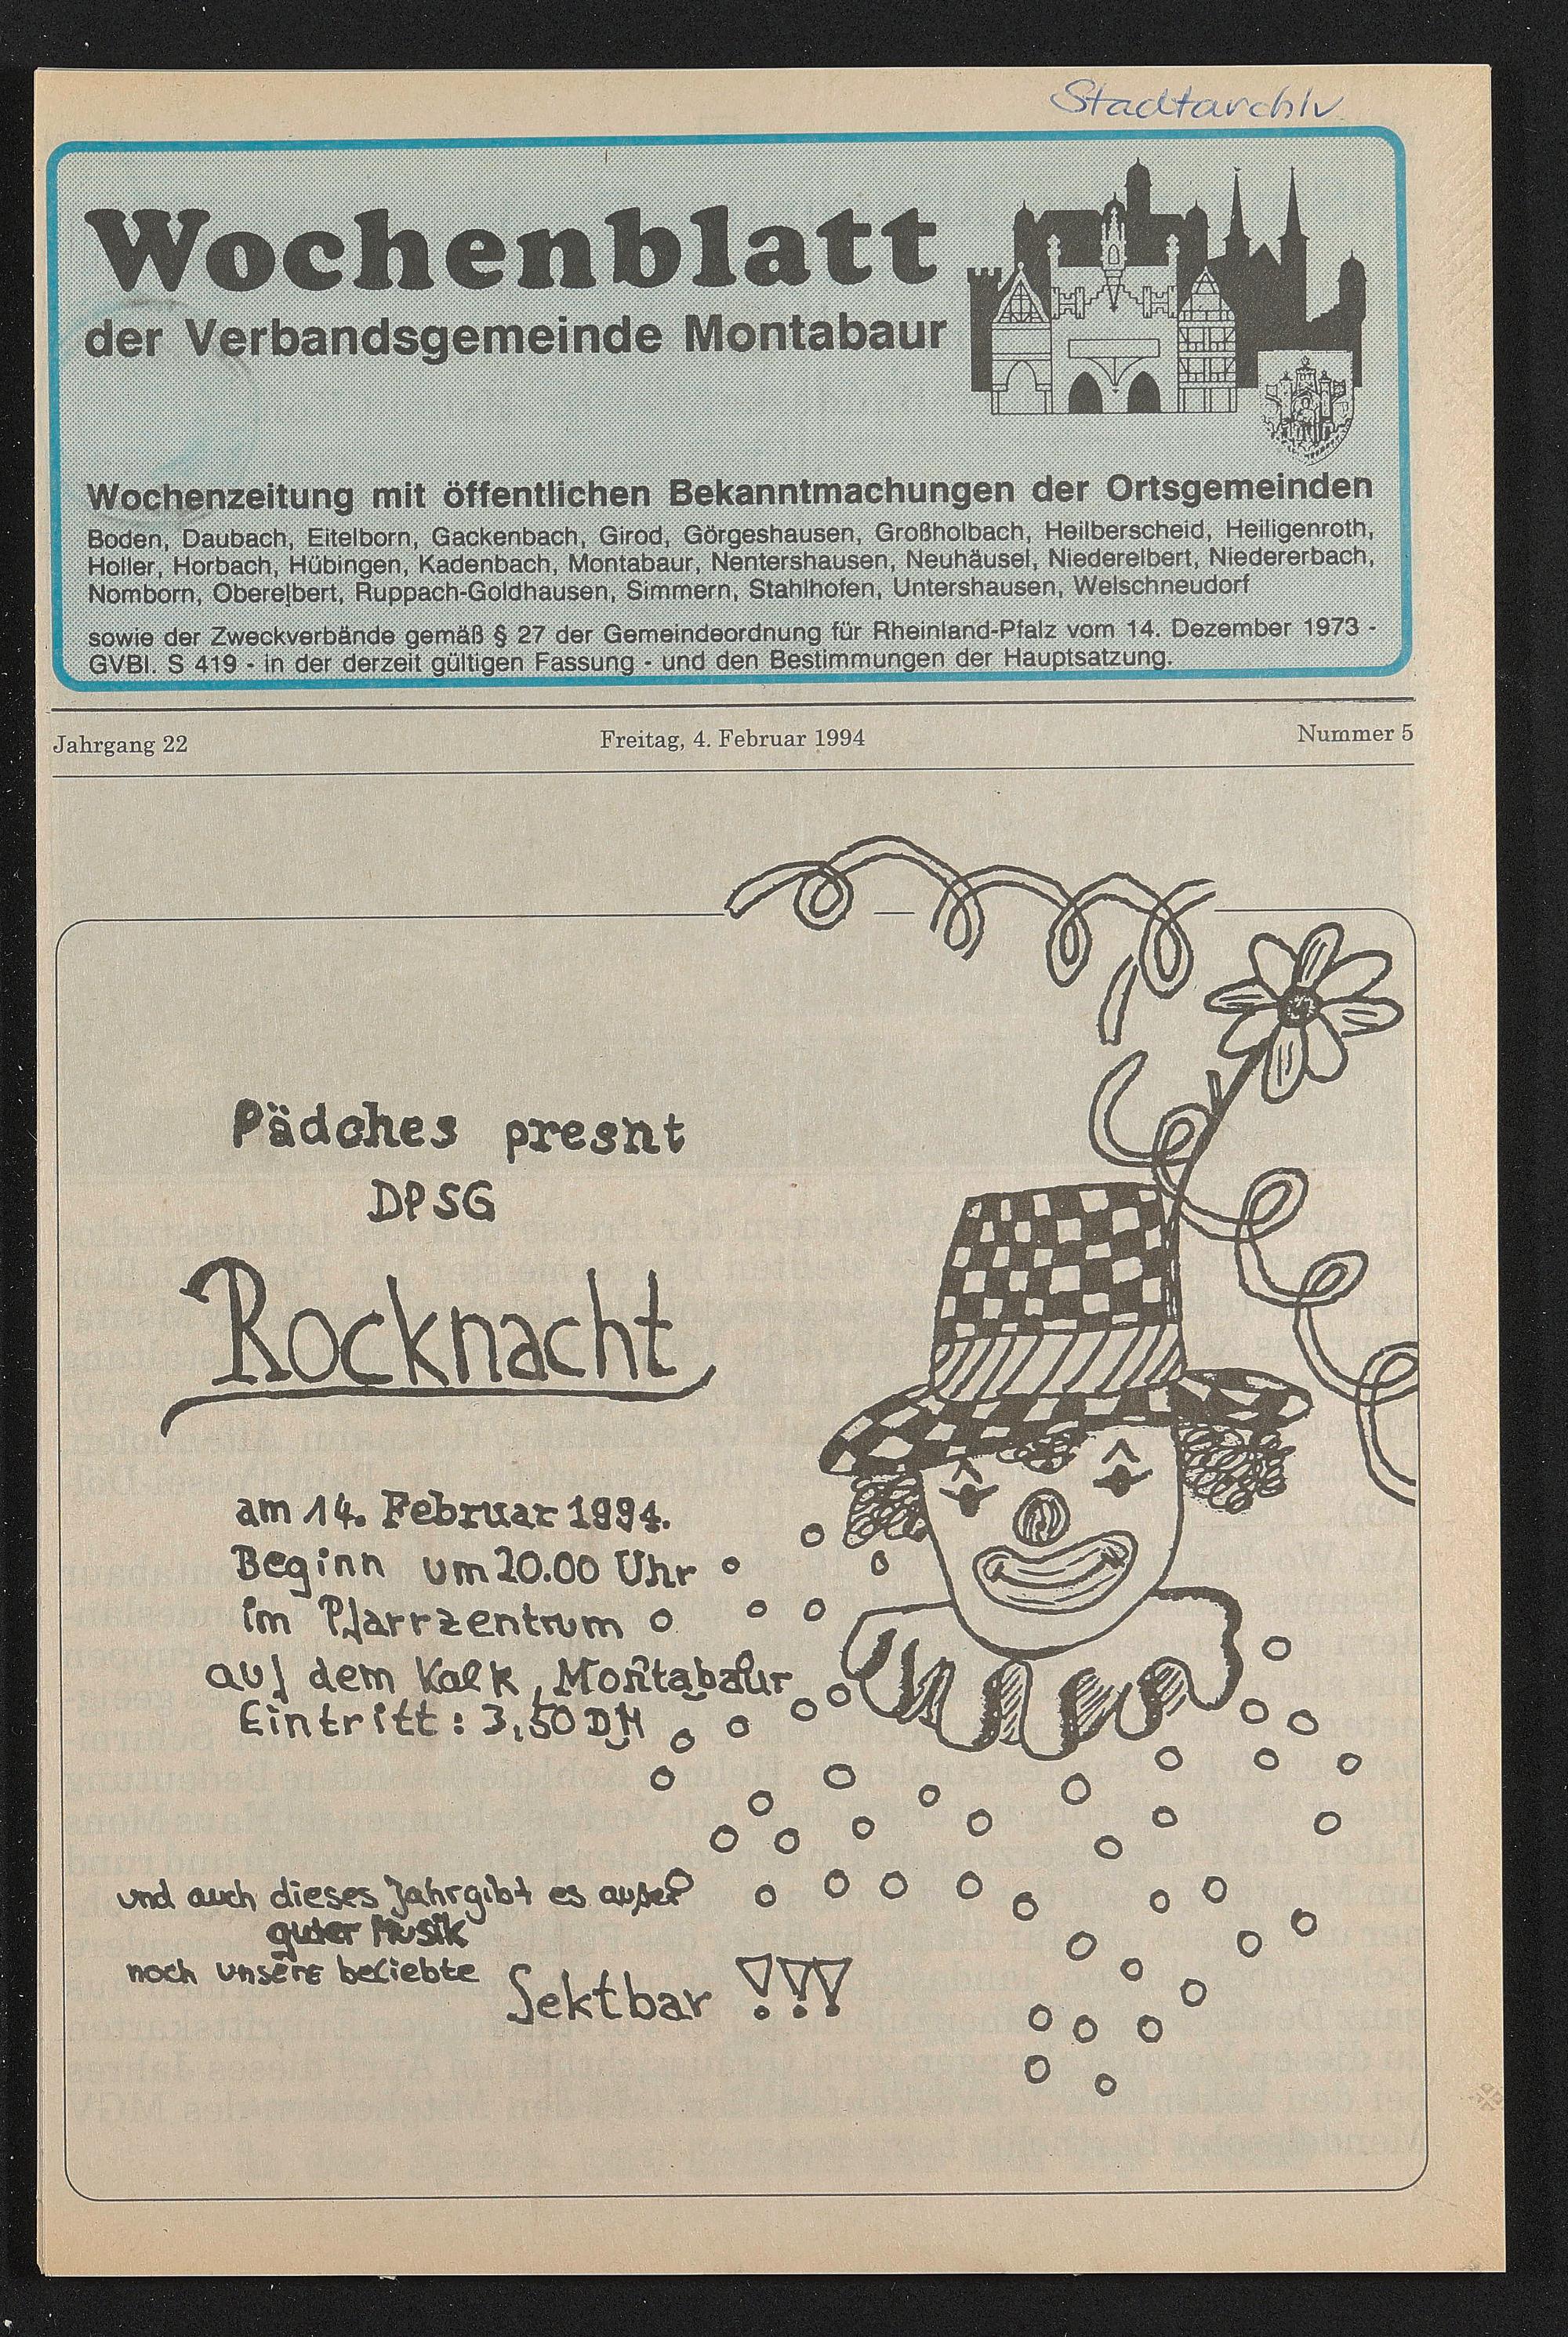 Stadtarchiv
Wochenblatt
der Verbandsgemeinde Montabaur
Wochenzeitung mit öffentlichen Bekanntmachungen der Ortsgemeinden
Boden, Daubach, Eitelborn, Gackenbach, Girod, Görgeshausen, Großholbach, Heilberscheid, Heiligenroth,
Holler, Horbach, Hübingen, Kadenbach, Montabaur, Nentershausen, Neuhäusel, Niederelbert, Niedererbach,
Nomborn, Oberelbert, Ruppach-Goldhausen, Simmern, Stahlhofen, Untershausen, Welschneudorf
sowie der Zweckverbände gemäß § 27 der Gemeindeordnung für Rheinland-Pfalz vom 14. Dezember 1973 -
GVBl. S 419 - in der derzeit gültigen Fassung - und den Bestimmungen der Hauptsatzung.
Jahrgang 22 Freitag, 4. Februar 1994 Nummer 5
Pädches presnt
DPSG
Rocknacht
am 14. Februar 1994.
Beginn um 20.00 Uhr
im Pfarrzentrum
auf dem Kalk, Montabaur
Eintritt: 3,50 DM
und auch dieses Jahr gibt es außer
guter Musik
noch unsere beliebte
Sektbar !!!